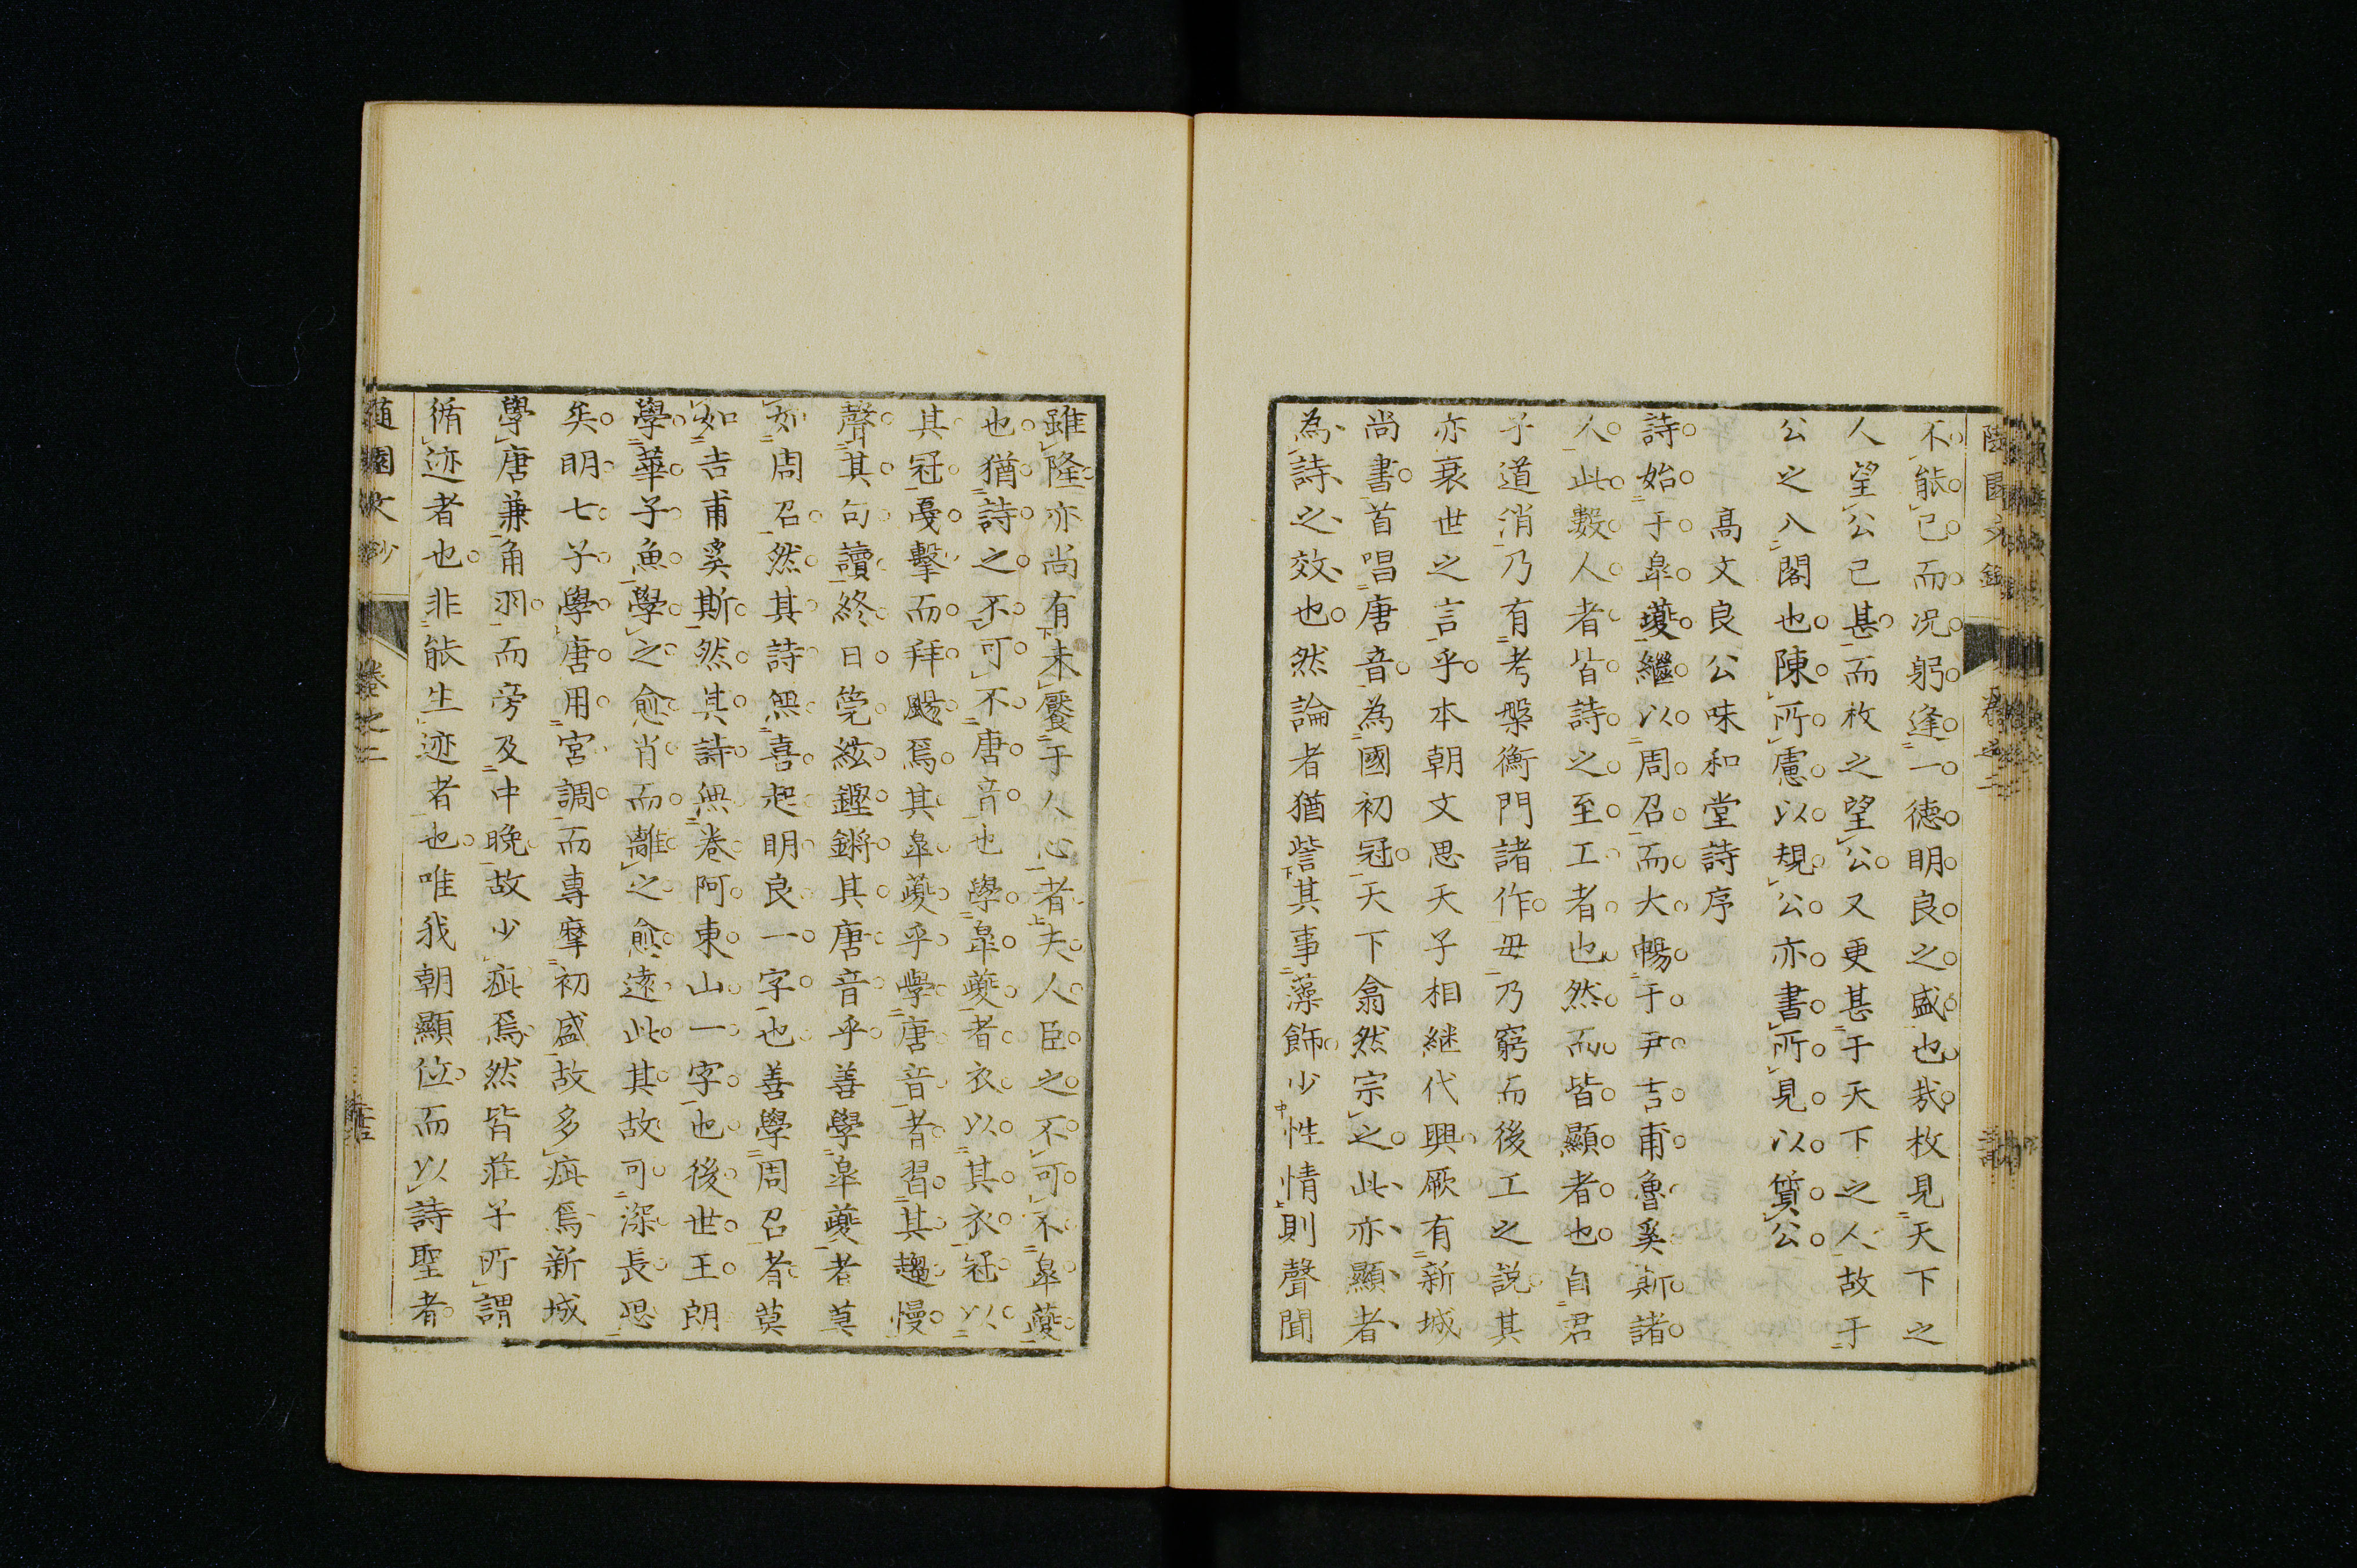 不能已而况躬逢一德明良之盛也哉枚見天下之
人望公已甚而枚之望公又更甚于天下之人故于
公之入閣也陳所慮以規公亦書所見以質公
高文良公味和堂詩序
詩始于臯夔繼以周召而大暢于尹吉甫魯奚斯諸
人此数人者皆詩之至工者也然而皆顯者也自君
子道消乃有考槃衡門諸作毋乃窮而後工之説其
亦衰世之言乎本朝文思天子相継代興厥有新城
尚書首唱唐音為國初冠天下翕然宗之此亦顯者
為詩之效也然論者猶訾其事藻飾少性情則聲聞
雖隆亦尚有未饜于人心者夫人臣之不可不臯夔
也猶詩之不可不唐音也學臯夔者衣以其衣冠以
其冠戞擊而拜颺焉其臯夔乎學唐音者習其趨慢
聲其句讀終日筦絃鏗鏘其唐音乎善學臯夔者莫
如周召然其詩無喜起明良一字也善學周召者莫
如吉甫奚斯然其詩無卷阿東山一字也後世王朗
學華子魚學之愈肖而離之愈遠此其故可深長思
矣明七子學唐用宮調而專摩初盛故多疵焉新城
學唐兼角羽而旁及中晚故少疵焉然皆莊子所謂
循迹者也非能生迹者也唯我朝顯位而以詩聖者
隨園文鈔
卷之二